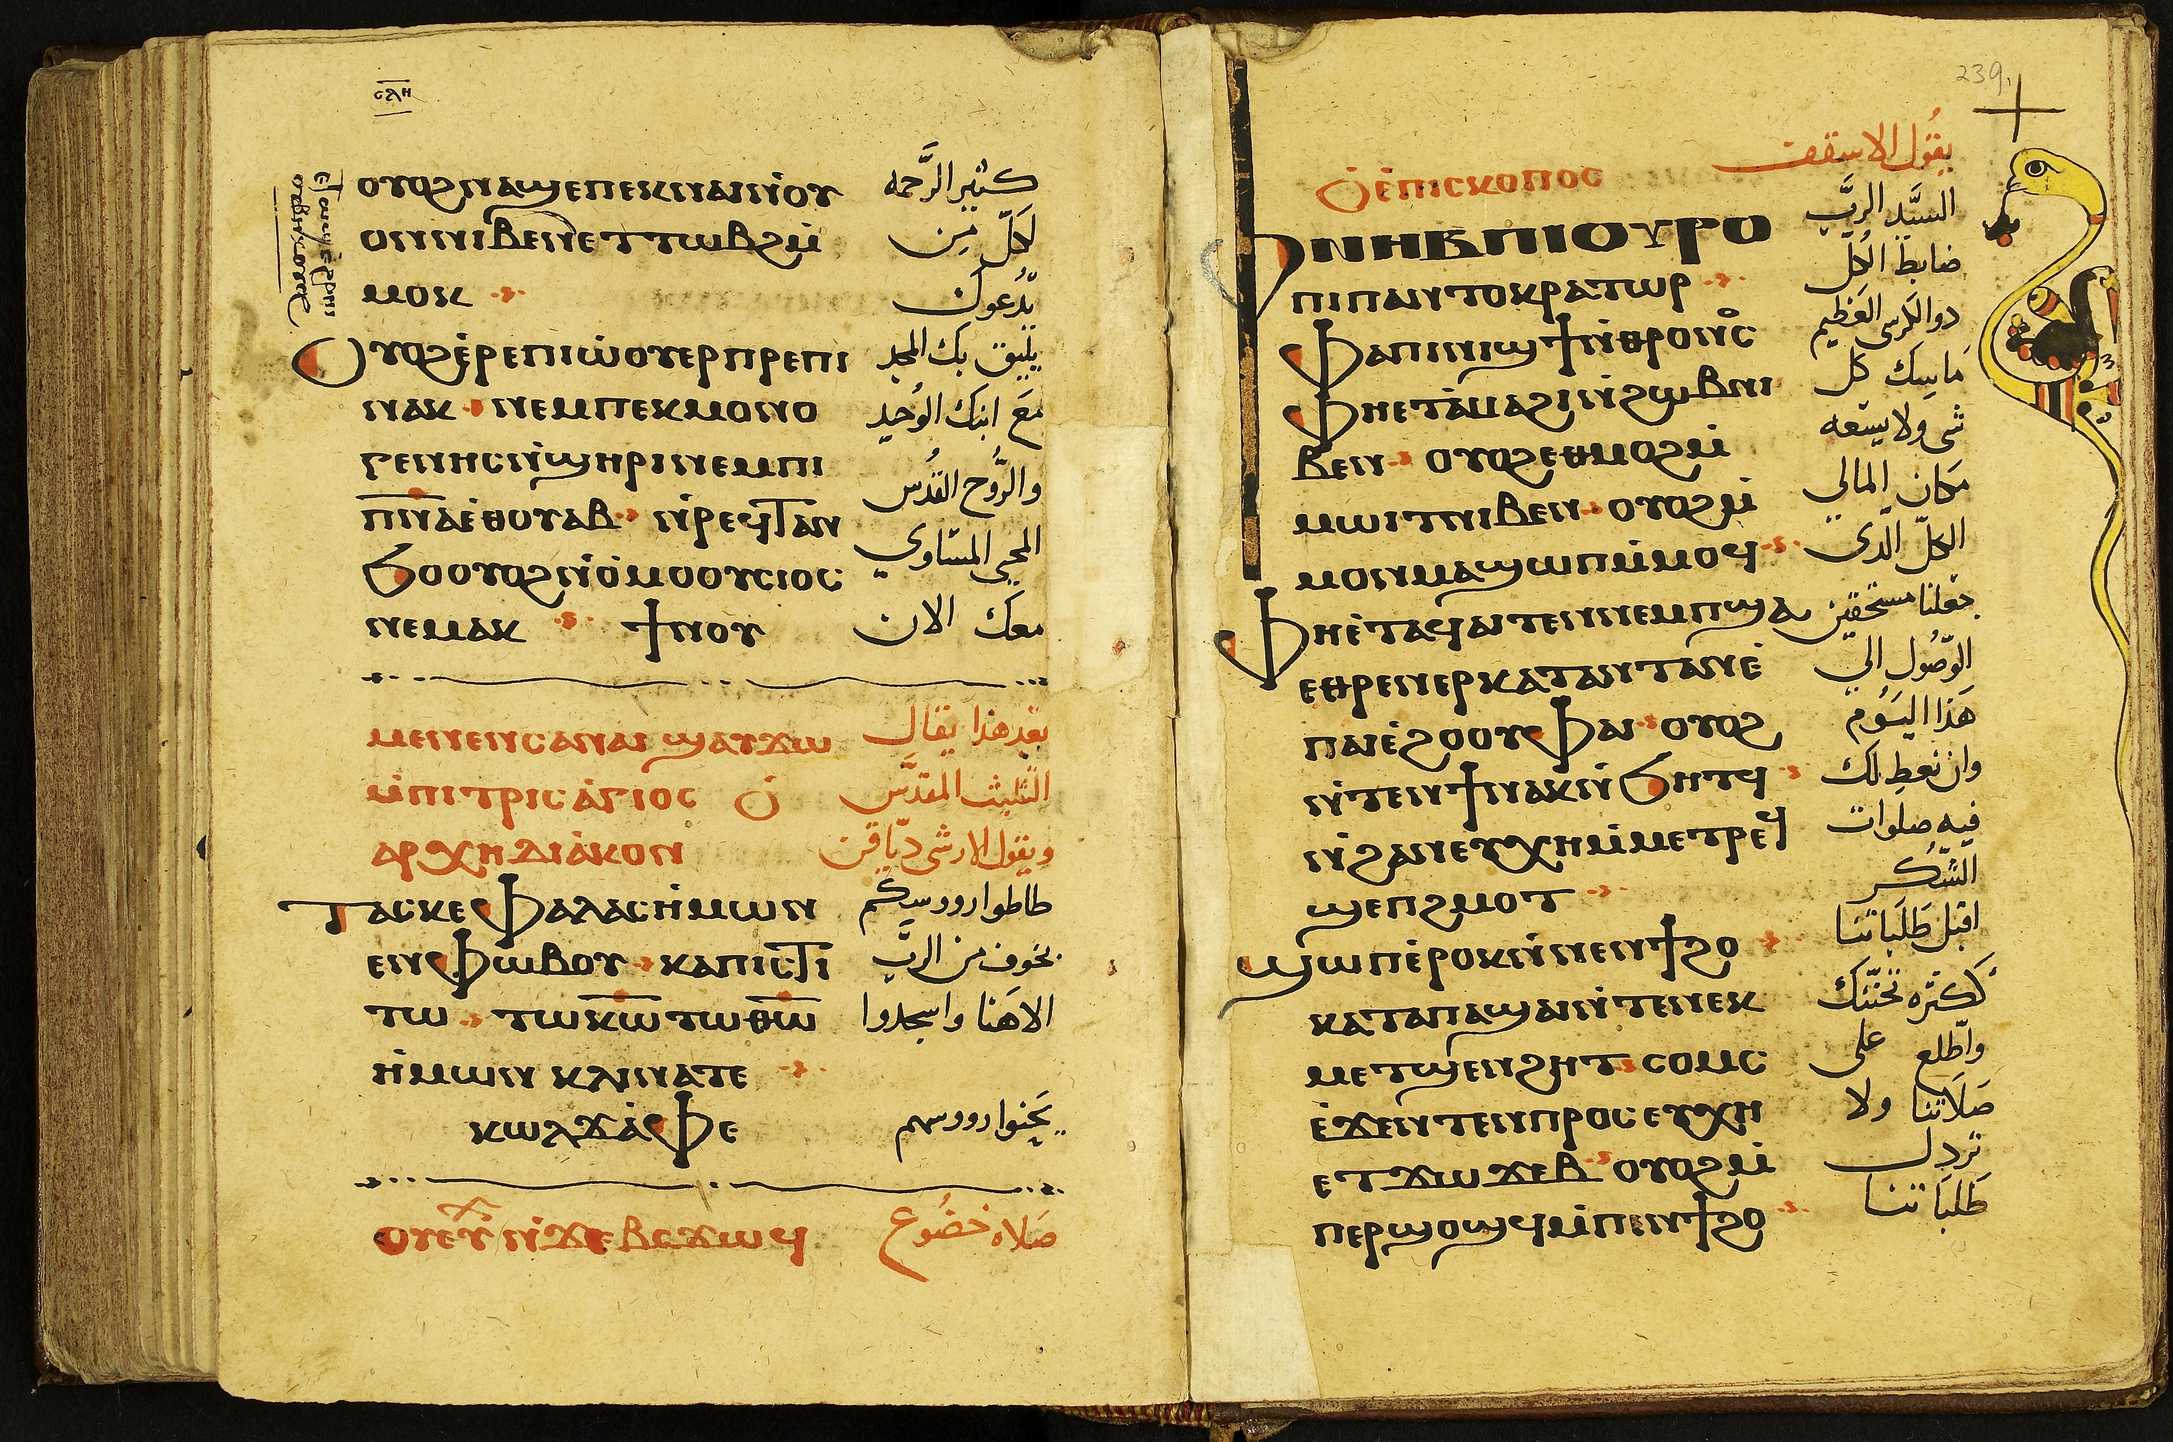 ⲥⲗⲏ
ⲟⲩⲟϩ ⲛⲁϣⲉ ⲡⲉⲕⲛⲁⲓ ⲛ̇ⲟⲩ
ⲟⲛ ⲛⲓⲃⲉⲛ ⲉⲧⲧⲱⲃϩ ⲙ̇
ⲙⲟⲕ
ⲟⲩⲟϩ ⲉ̇ⲣⲉ ⲡⲓⲱ̇ⲟⲩ ⲉⲣⲡⲣⲉⲡⲓ
ⲛⲁⲕ ⲛⲉⲙ ⲡⲉⲕⲙⲟⲛⲟ
ⲅⲉⲛⲏⲥ ⲛ̇ϣⲏⲣⲓ ⲛⲉⲙ ⲡⲓ
ⲡ̅ⲛ̅ⲁ̅ ⲉ̇ⲑⲟⲩⲁⲃ ⲛ̇ⲣⲉϥⲧⲁⲛ
ϧⲟ ⲟⲩⲟϩ ⲛ̇ⲟ̇ⲙⲟⲟⲩⲥⲓⲟⲥ
ⲛⲉⲙⲁⲕ ϯⲛⲟⲩ
ⲙⲉⲛⲉⲛⲥⲁ ⲛⲁⲓ ϣⲁⲩϫⲱ
ⲙ̇ⲡⲓⲧⲣⲓⲥⲁ̇ⲅⲓⲟⲥ ⲟ̇
ⲁⲣⲭⲏⲇⲓⲁ̇ⲕⲟⲛ
ⲧⲁⲥ ⲕⲉⲫⲁⲗⲁⲥ ⲏ̇ⲙⲱⲛ
ⲉⲛ ⲫⲱ̇ⲃⲟⲩ ⲕⲁ ⲡⲓⲥϯ
ⲧⲱ ⲧⲱ ⲕ̅ⲱ̅ ⲧⲱ ⲑ̅ⲱ̅
ⲏ̇ⲙⲱⲛ ⲕⲗⲓⲛⲁⲧⲉ
ⲕⲱⲗϫⲁ̇ⲫⲉ
ⲟⲩⲉⲩⲭ ⲛ̇ϫⲉⲃⲉϫⲱϥ
كثير الرَّحمه
لكلّ من
يدّعوك
يليق بك المجد
مَع ابنك الوُحيد
والرُّوح القدُس
المحيى المسَاوي
معَك الان
بَعد هذا يقال
التثليث المقدَّس
ويقول الارشى ديّاقن
طاطوا رووسكم
بخوف من الربَّ
الاهَنا واسجدوا
يَحنوا رووسهم
صَلاه خضُوع
239
يقوُل الاسقف
ⲟ̇ ⲉ̇ⲡⲓⲥⲕⲟⲡⲟⲥ
ⲫⲛⲏⲃ ⲡⲓⲟⲩⲣⲟ
ⲡⲓⲡⲁⲛⲧⲟⲕⲣⲁⲧⲱⲣ
ⲫⲁ ⲡⲓⲛⲓϣϯ ⲛ̇ⲑⲣⲟⲛⲟⲥ
ⲫⲏⲉⲧⲁ̇ⲙⲁϩⲓ ⲛ̇ϩⲱⲃ ⲛⲓ
ⲃⲉⲛ ⲟⲩⲟϩ ⲉⲑⲙⲟϩ ⲙ̇
ⲙⲱⲓⲧ ⲛⲓⲃⲉⲛ ⲟⲩⲟϩ ⲙ̇
ⲙⲟⲛ ⲙⲁ ϣⲱⲡ ⲙ̇ⲙⲟϥ
ⲫⲏⲉ̇ⲧⲁϥⲁⲓⲧⲉⲛ ⲛⲉⲙⲡϣⲁ
ⲉⲑⲣⲉⲛⲉⲣⲕⲁⲧⲁⲛⲧⲁⲛ ⲉ̇
ⲡⲁⲓⲉ̇ϩⲟⲟⲩ ⲫⲁⲓ ⲟⲩⲟϩ
ⲛ̇ⲧⲉⲛϯ ⲛⲁⲕ ⲛ̇ϧⲏⲧϥ
ⲛ̇ϩⲁⲛⲉⲩⲭⲏ ⲙ̇ⲙⲉⲧⲣⲉϥ
ϣⲉⲡϩⲙⲟⲧ
ϣⲱⲡ ⲉ̇ⲣⲟⲕ ⲛ̇ⲛⲉⲛϯϩⲟ
ⲕⲁⲧⲁ ⲡⲁϣⲁⲓ ⲛ̇ⲧⲉ ⲛⲉⲕ
ⲙⲉⲧϣⲉⲛϩⲏⲧ ⲥⲟⲙⲥ
ⲉ̇ϫⲉⲛ ⲧⲉⲛⲡⲣⲟⲥⲉⲩⲭⲏ
ⲉⲧϫⲱϫⲉⲃ ⲟⲩⲟϩ ⲙ̇
ⲡⲉⲣϣⲟϣϥ ⲙ̇ⲡⲉⲛϯϩⲟ
السيَّد الربَّ
ضابط الكلّ
دوا الكرسى العَظيم
مَاسِك كل
شى ولا يسَعه
مَكان المالي
الكلّ الّدى
جعَلنا مستحقين
الوّصُول الي
هَذا اليَوُم
وان نعطِ لك
فيه صلوات
الشُكر
اقبَل طَلباتنا
كَكتره تحننّك
واطّلع على
صَلاتنا ولا
تردل
طَلبَاتنا